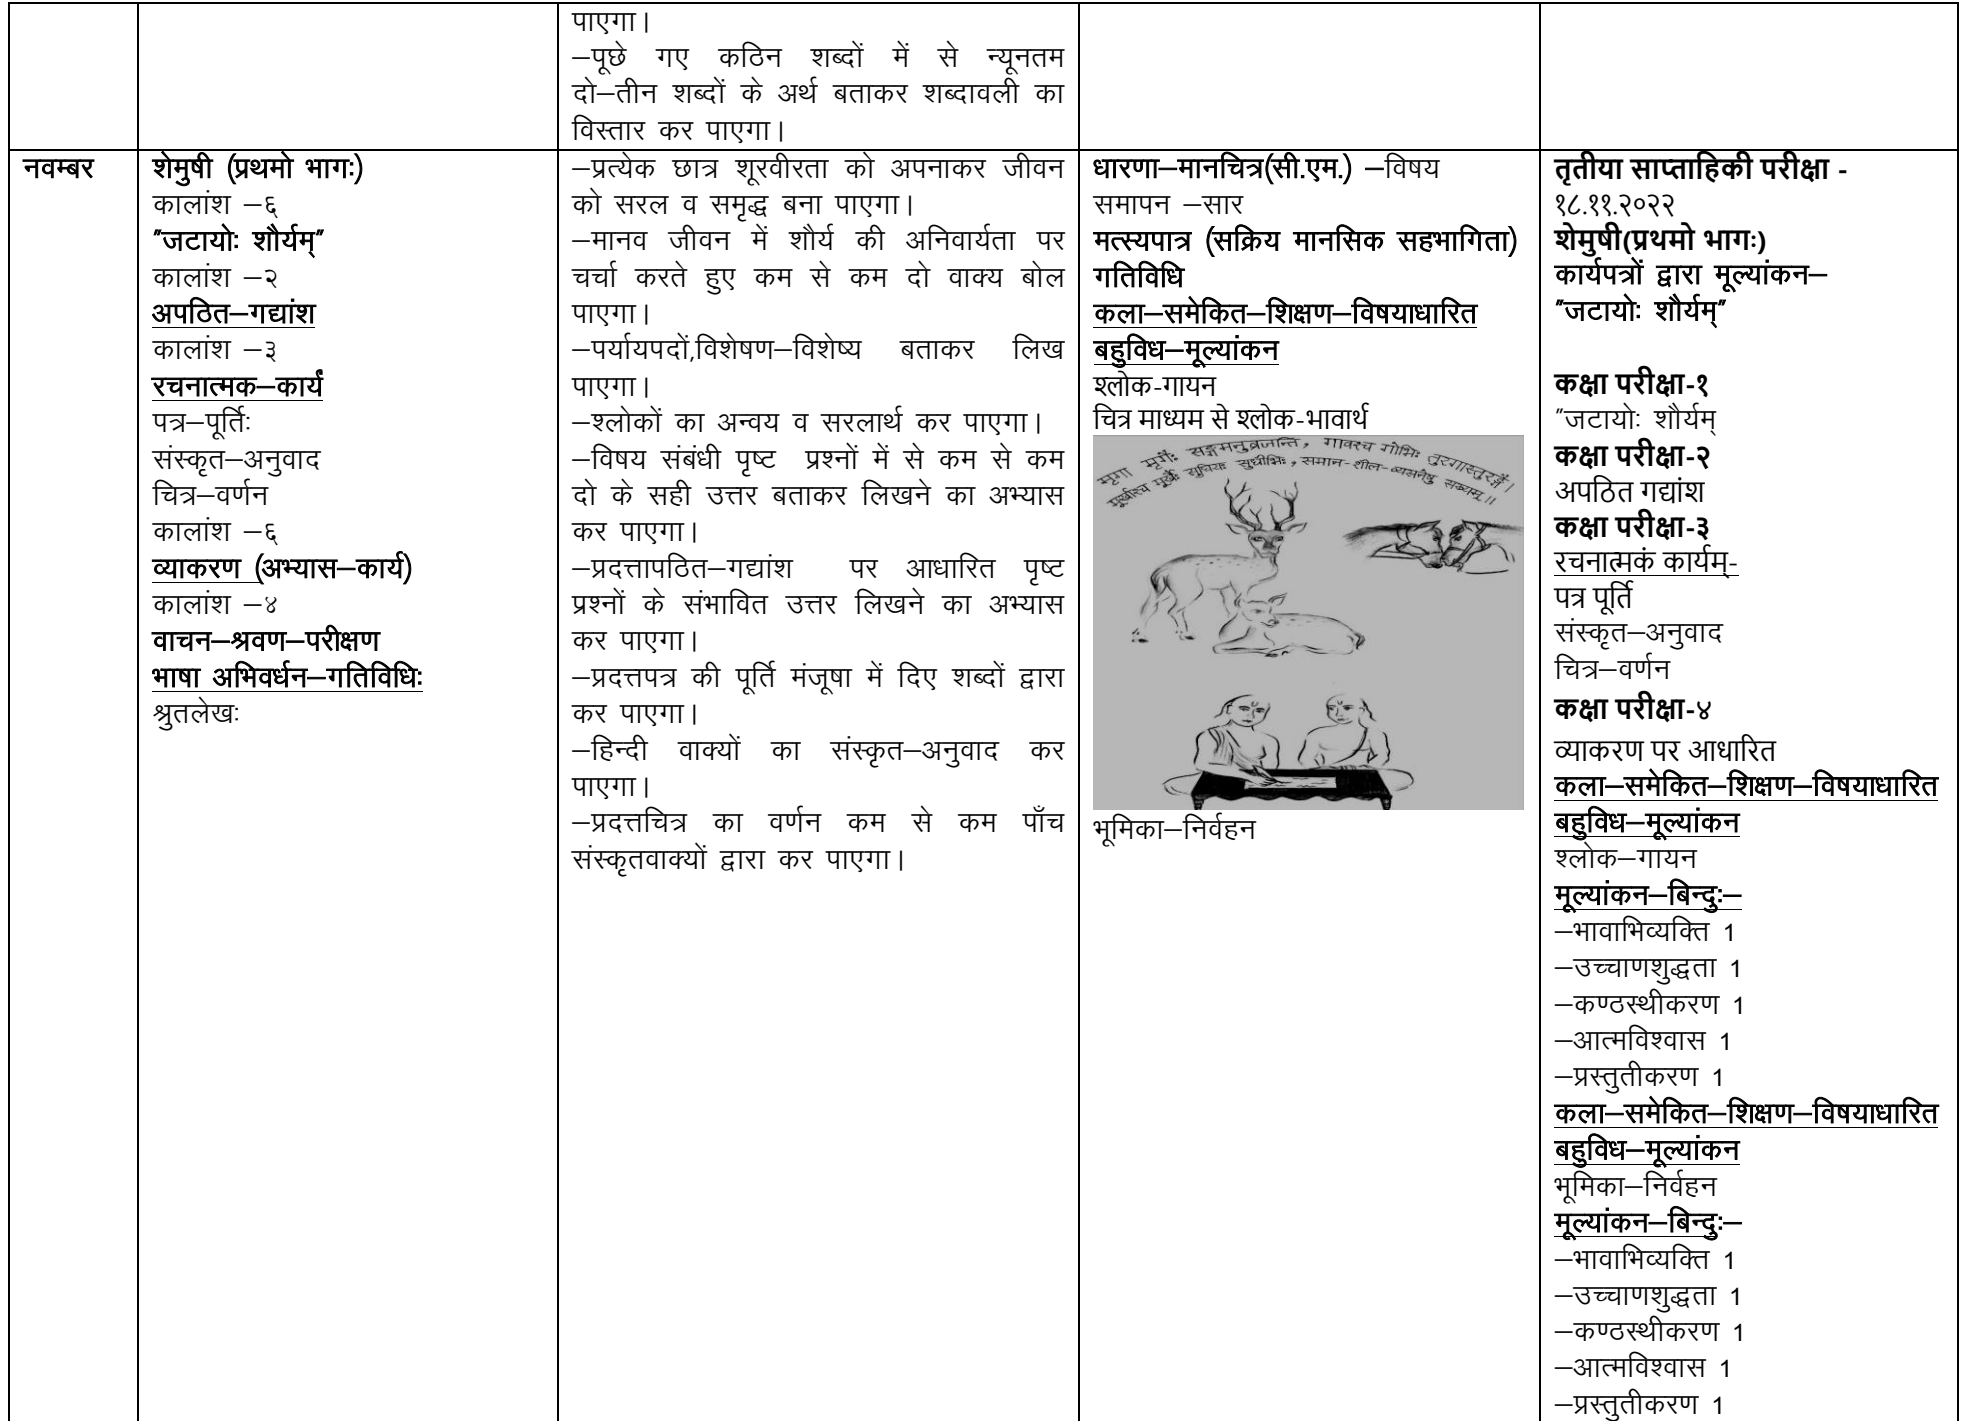 पाएगा।
–पूछे गए कठिन शब्दों में से न्यूनतम
दो–तीन शब्दों के अर्थ बताकर शब्दावली का
विस्तार कर पाएगा।
नवम्बर
शेमुषी (प्रथमो भागः)
कालांश –६
"जटायोः शौर्यम्"
कालांश –२
अपठित–गद्यांश
कालांश –३
रचनात्मक–कार्यं
पत्र–पूर्तिः
संस्कृत–अनुवाद
चित्र–वर्णन
कालांश –६
व्याकरण (अभ्यास–कार्य)
कालांश –४
वाचन–श्रवण–परीक्षण
भाषा अभिवर्धन–गतिविधिः
श्रुतलेखः
–प्रत्येक छात्र शूरवीरता को अपनाकर जीवन
को सरल व समृद्ध बना पाएगा।
–मानव जीवन में शौर्य की अनिवार्यता पर
चर्चा करते हुए कम से कम दो वाक्य बोल
पाएगा।
–पर्यायपदों,विशेषण–विशेष्य बताकर लिख
पाएगा।
–श्लोकों का अन्वय व सरलार्थ कर पाएगा।
–विषय संबंधी पृष्ट प्रश्नों में से कम से कम
दो के सही उत्तर बताकर लिखने का अभ्यास
कर पाएगा।
–प्रदत्तापठित–गद्यांश पर आधारित पृष्ट
प्रश्नों के संभावित उत्तर लिखने का अभ्यास
कर पाएगा।
–प्रदत्तपत्र की पूर्ति मंजूषा में दिए शब्दों द्वारा
कर पाएगा।
–हिन्दी वाक्यों का संस्कृत–अनुवाद कर
पाएगा।
–प्रदत्तचित्र का वर्णन कम से कम पाँच
संस्कृतवाक्यों द्वारा कर पाएगा।
धारणा–मानचित्र(सी.एम.) –विषय
समापन –सार
मत्स्यपात्र (सक्रिय मानसिक सहभागिता)
गतिविधि
कला–समेकित–शिक्षण–विषयाधारित
बहुविध–मूल्यांकन
श्लोक-गायन
चित्र माध्यम से श्लोक-भावार्थ
मृगा मृगैः सङ्गमनुव्रजन्ति, गावश्च गोभिः तुरगास्तुरङ्गैः।
मूर्खाश्च मूर्खैः सुधियः सुधीभिः, समान-शील-व्यसनेषु सख्यम्॥
भूमिका–निर्वहन
तृतीया साप्ताहिकी परीक्षा -
१८.११.२०२२
शेमुषी(प्रथमो भागः)
कार्यपत्रों द्वारा मूल्यांकन–
"जटायोः शौर्यम्"
कक्षा परीक्षा-१
"जटायोः शौर्यम्
कक्षा परीक्षा-२
अपठित गद्यांश
कक्षा परीक्षा-३
रचनात्मकं कार्यम्-
पत्र पूर्ति
संस्कृत–अनुवाद
चित्र–वर्णन
कक्षा परीक्षा-४
व्याकरण पर आधारित
कला–समेकित–शिक्षण–विषयाधारित
बहुविध–मूल्यांकन
श्लोक–गायन
मूल्यांकन–बिन्दुः–
–भावाभिव्यक्ति 1
–उच्चाणशुद्धता 1
–कण्ठस्थीकरण 1
–आत्मविश्वास 1
–प्रस्तुतीकरण 1
कला–समेकित–शिक्षण–विषयाधारित
बहुविध–मूल्यांकन
भूमिका–निर्वहन
मूल्यांकन–बिन्दुः–
–भावाभिव्यक्ति 1
–उच्चाणशुद्धता 1
–कण्ठस्थीकरण 1
–आत्मविश्वास 1
–प्रस्तुतीकरण 1